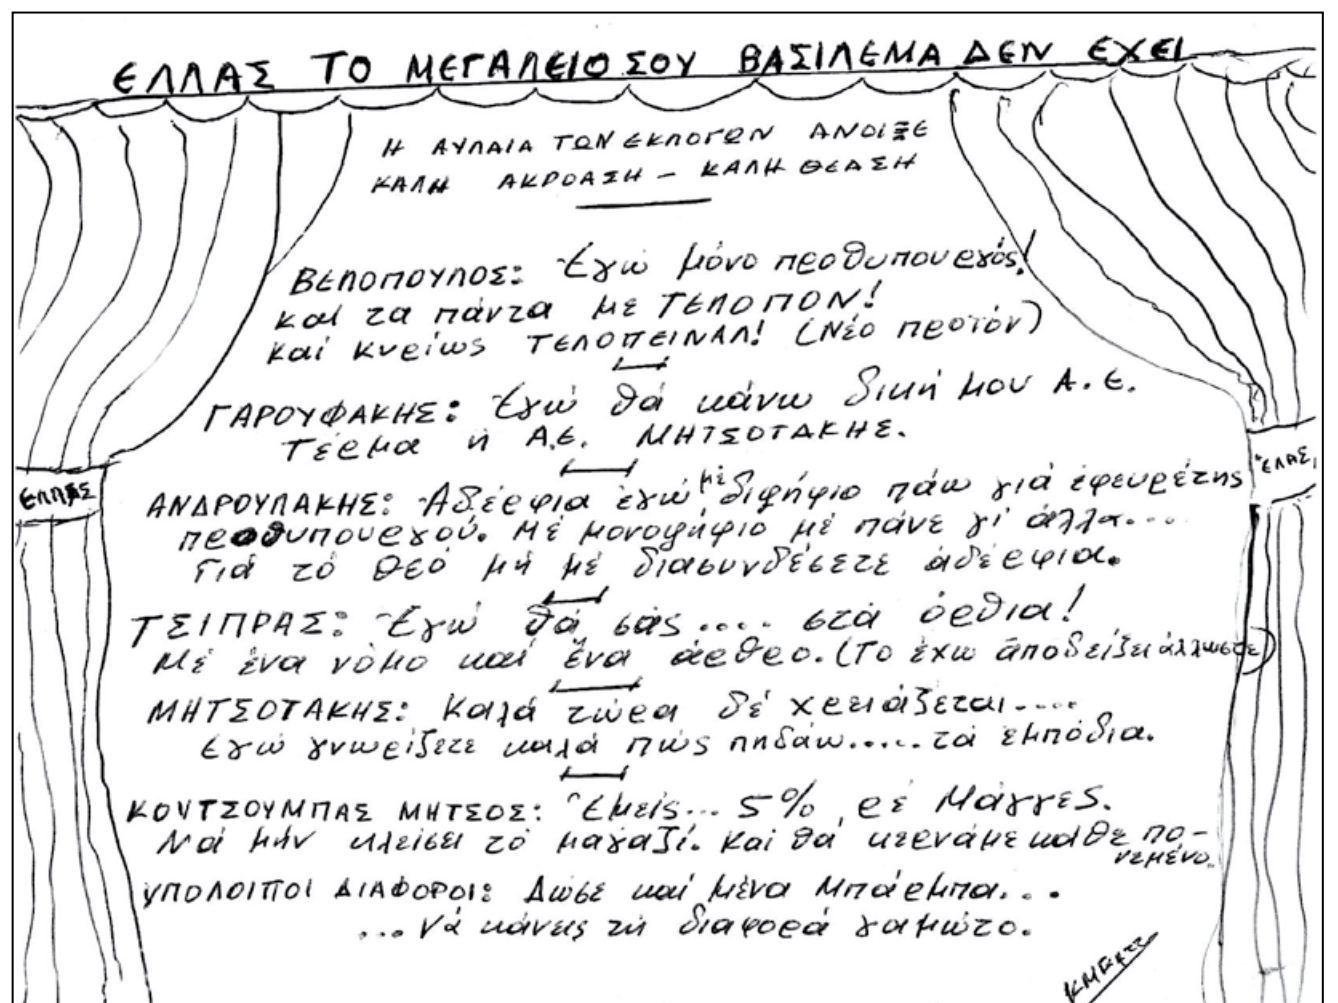 ΕΛΛΑΣ ΤΟ ΜΕΓΑΛΕΙΟ ΣΟΥ ΒΑΣΙΛΕΜΑ ΔΕΝ ΕΧΕΙ
Η ΑΥΛΑΙΑ ΤΩΝ ΕΚΛΟΓΩΝ ΑΝΟΙΞΕ
ΚΑΛΗ ΑΚΡΟΑΣΗ – ΚΑΛΗ ΘΕΑΣΗ
ΒΕΛΟΠΟΥΛΟΣ: Ἐγώ μόνο προθυπουργός!
και τα πάντα με ΤΕΛΟΠΟΝ!
καί κυρίως ΤΕΛΟΠΕΙΝΑΛ! (Νέο προτόν)
ΓΑΡΟΥΦΑΚΗΣ: Ἐγώ θά κάνω δική μου Α.Ε.
Τέρμα ἡ Α.Ε. ΜΗΤΣΟΤΑΚΗΣ.
ΑΝΔΡΟΥΛΑΚΗΣ: Ἀδέρφια ἐγώ μέ διψήφιο πάω γιά ἐφευρέτης
προθυπουργού. Μέ μονοψήφιο μέ πάνε γι' άλλα....
Γιά τό Θεό μή μέ διασυνδέσετε ἀδέρφια.
ΤΣΙΠΡΑΣ: Ἐγώ θά σάς.... στά όρθια!
Μέ ένα νόμο καί ἕνα άρθρο. (Το έχω ἀποδείξει άλλωστε)
ΜΗΤΣΟΤΑΚΗΣ: Καλά τώρα δέ χρειάζεται....
Ἐγώ γνωρίζετε καλά πώς πηδάω..... τά ἐμπόδια.
ΚΟΥΤΣΟΥΜΠΑΣ ΜΗΤΣΟΣ: Ἐμείς... 5% ρέ Μάγγες.
Νά μήν κλείσει τό μαγαζί. Καί θά κερνάμε κάθε πο-
νεμένο.
ΥΠΟΛΟΙΠΟΙ ΔΙΑΦΟΡΟΙ: Δώσε καί μένα Μπάρμπα...
... Νά κάνεις τή διαφορά γαμώτο.
ΕΛΛΑΣ
ΕΛΑΣ